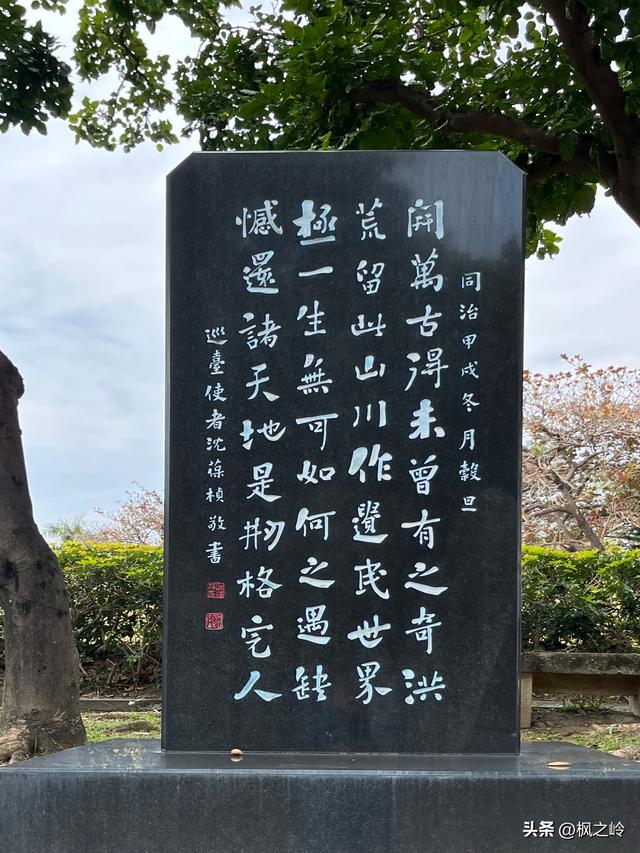 同治甲戌冬月穀旦
開萬古得未曾有之奇洪
荒留此山川作遺民世界
極一生無可如何之遇缺
憾還諸天地是剏格完人
巡臺使者沈葆楨敬書
头条 @枫之岭